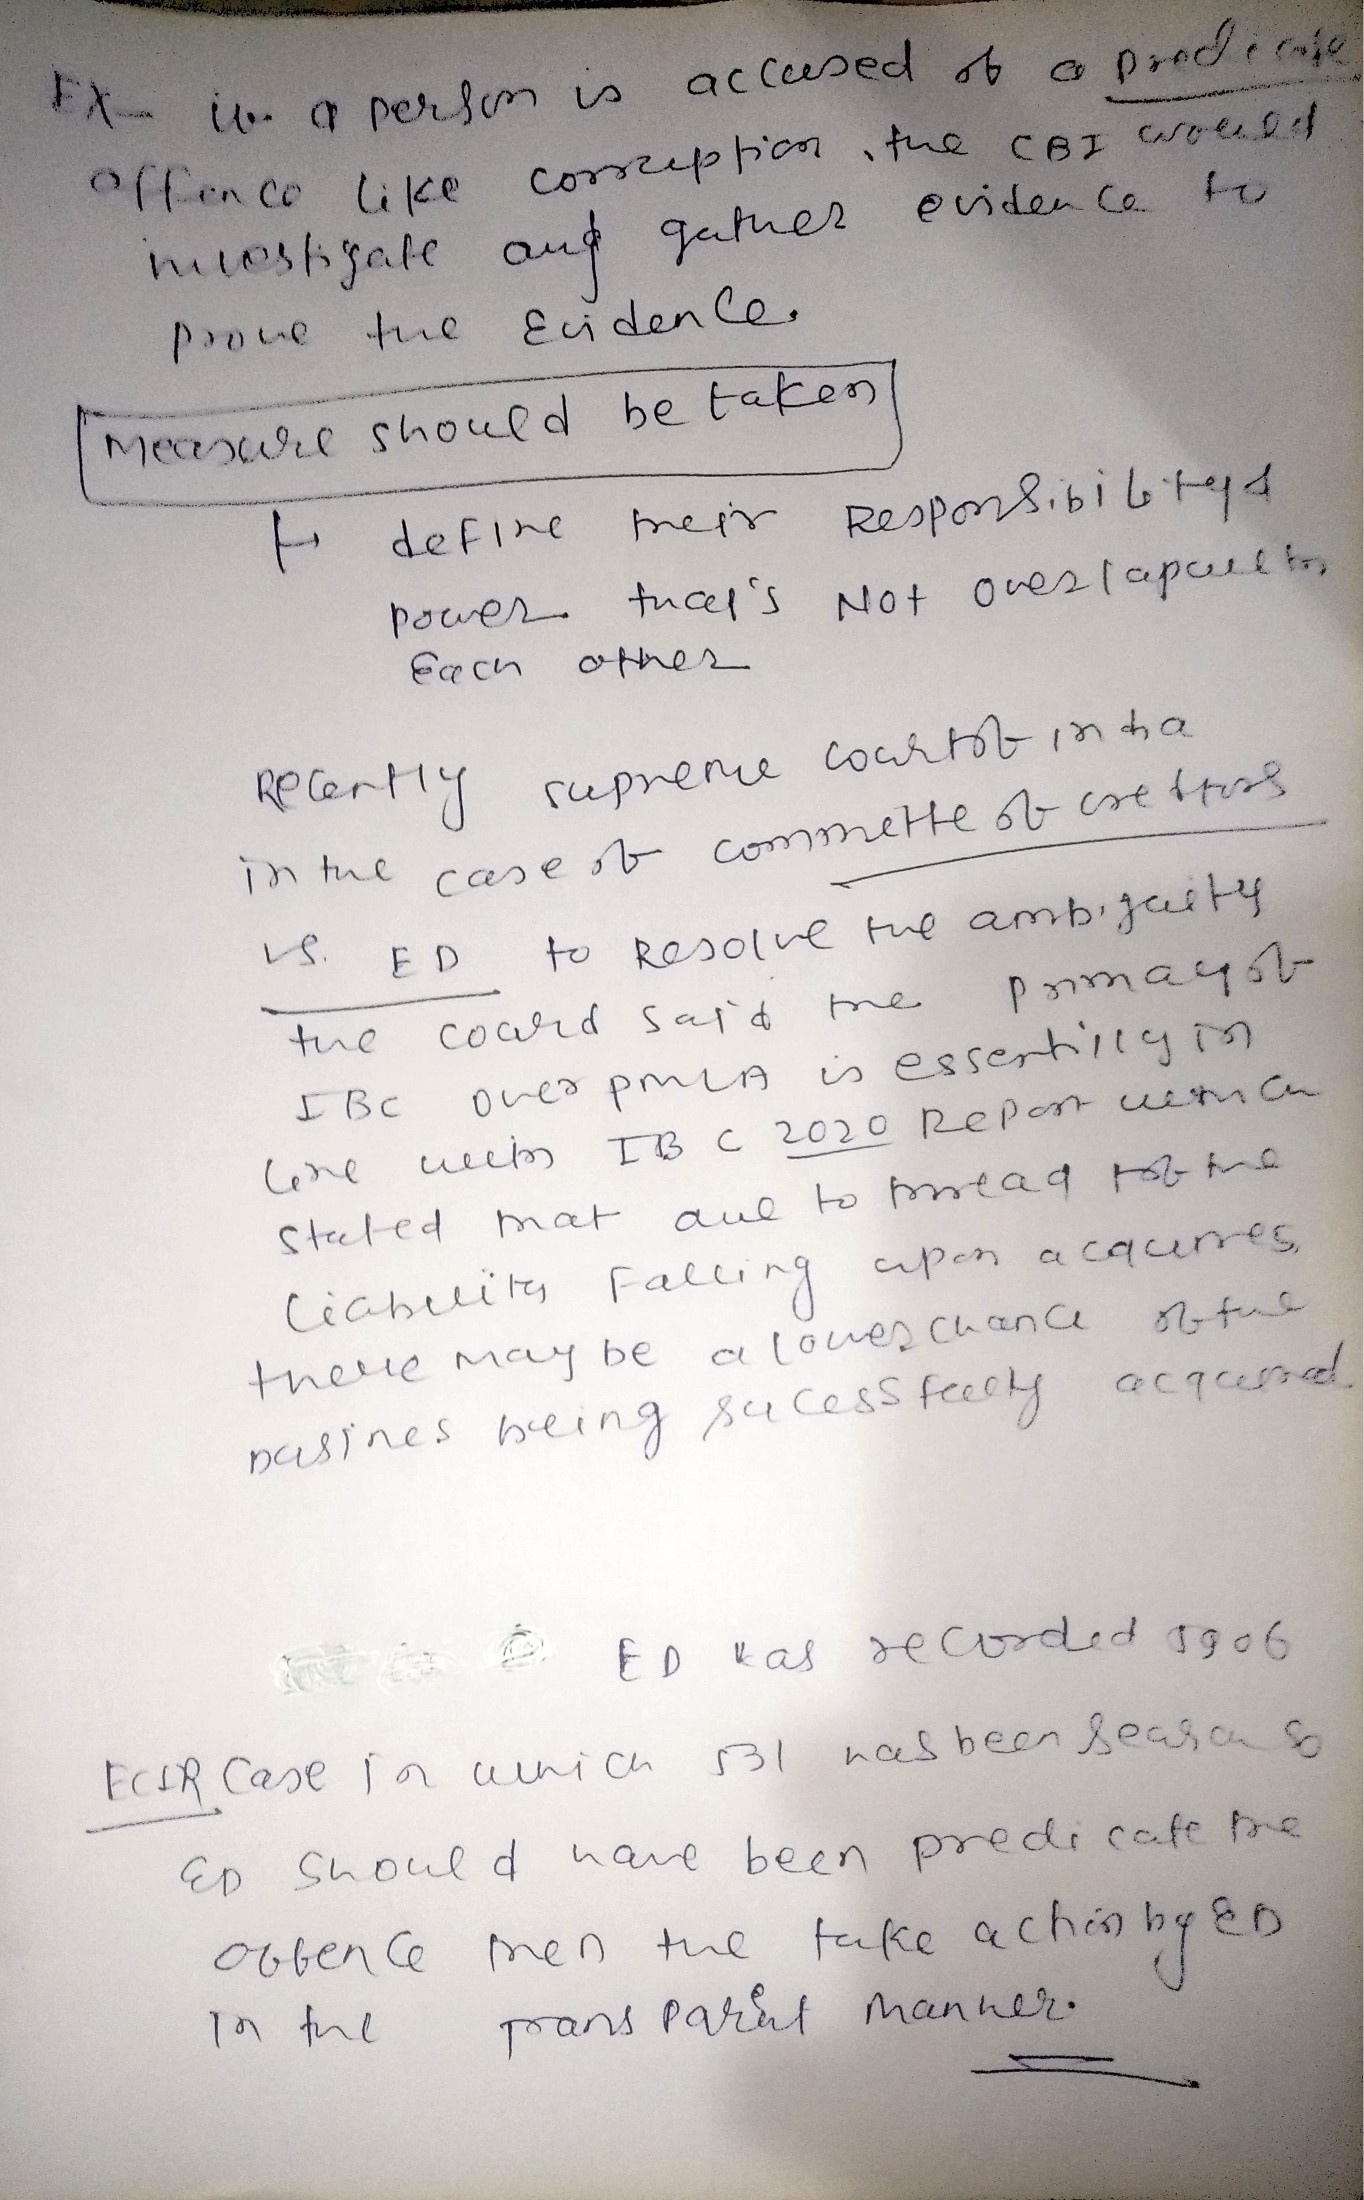 Ex- if a person is accused of a predicate
offence like corruption, the CBI would
investigate and gather evidence to
prove the Evidence.
Measure should be taken
→ define their Responsibility &
power that's Not overlap with
Each other
Recently supreme court of india
in the case of commette of creditors
vs. ED to Resolve the ambiguity
the court said the primacy of
IBC over PMLA is essentilly in
line with IBC 2020 Report which
stated that due to threat of the
liability falling upon acquires,
there may be a lower chance of the
busines being sucessfully acquired
ED has recorded 5906
ECIR Case in which 531 has been search so
ED should have been predicate the
offence then the take action by ED
In the transparent manner.